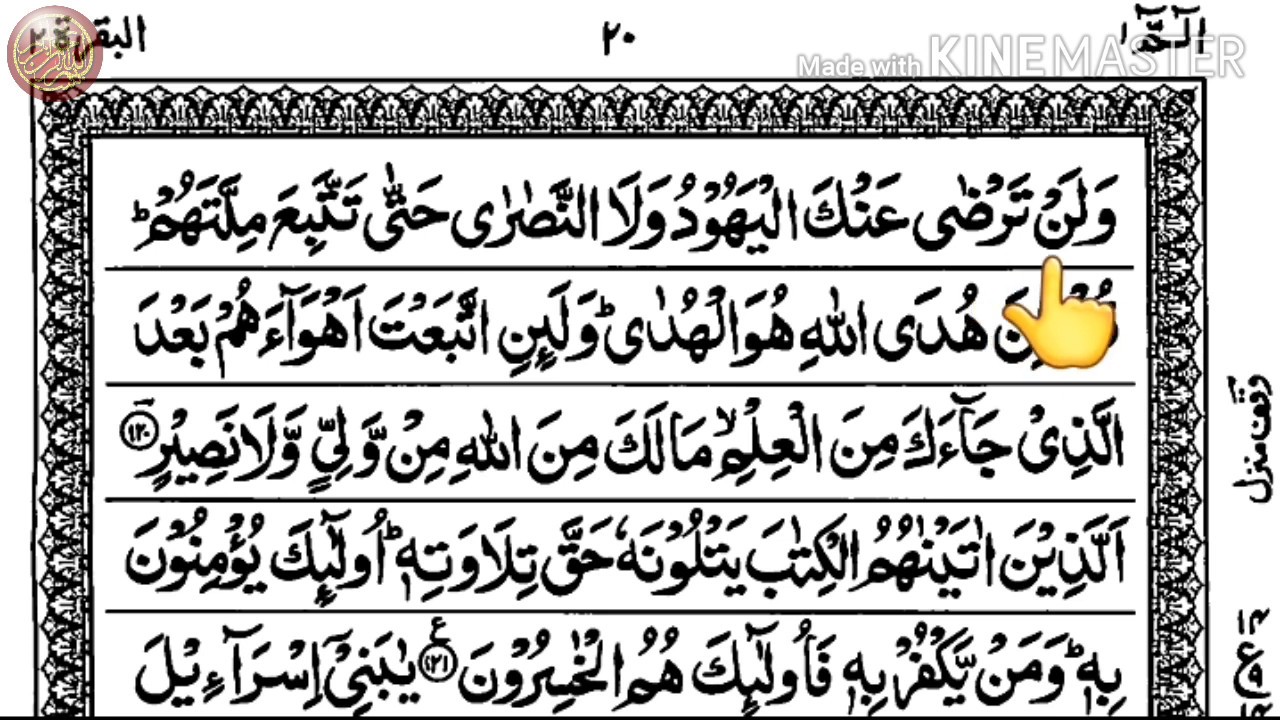 الٓـمّٓ ١
٢٠
البقرة ٢
Made with KINEMASTER
وَلَنْ تَرْضٰى عَنْكَ الْيَهُوْدُ وَلَا النَّصٰرٰى حَتّٰى تَتَّبِعَ مِلَّتَهُمْ ؕ
هُدَى اللّٰهِ هُوَ الْهُدٰى ؕ وَلَىِٕنِ اتَّبَعْتَ اَهْوَآءَهُمْ بَعْدَ
الَّذِىْ جَآءَكَ مِنَ الْعِلْمِ ۙ مَا لَكَ مِنَ اللّٰهِ مِنْ وَّلِىٍّ وَّلَا نَصِيْرٍ ؔ ﴿١٢٠﴾
اَلَّذِيْنَ اٰتَيْنٰهُمُ الْكِتٰبَ يَتْلُوْنَهٗ حَقَّ تِلَاوَتِهٖ ؕ اُولٰٓىِٕكَ يُؤْمِنُوْنَ
بِهٖ ؕ وَمَنْ يَّكْفُرْ بِهٖ فَاُولٰٓىِٕكَ هُمُ الْخٰسِرُوْنَ ﴿١٢١﴾ ع يٰبَنِىْۤ اِسْرَآءِيْلَ
وقف منزل